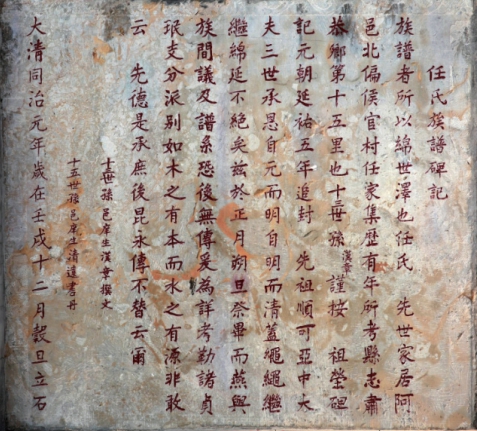 任氏族譜碑記
族譜者所以綿世澤也任氏 先世家居阿
邑北偏侯官村任家集歷有年所考縣志肅
恭鄉第十五里也十三世孫漢章謹按 祖塋碑
記元朝延祐五年追封 先祖順可亞中大
夫三世承恩自元而明自明而清蓋繩繩繼
繼綿延不絕矣茲於正月朔旦奈畢而燕與
族間議及譜系恐後無傳爰為詳考勒諸貞
珉支分派別如木之有本而水之有源非敢
云 先德是承庶後昆永傳不替云爾
十三世孫邑庠生漢章撰文
十五世孫邑庠生清遠書丹
大清同治元年歲在壬戌十二月穀旦立石